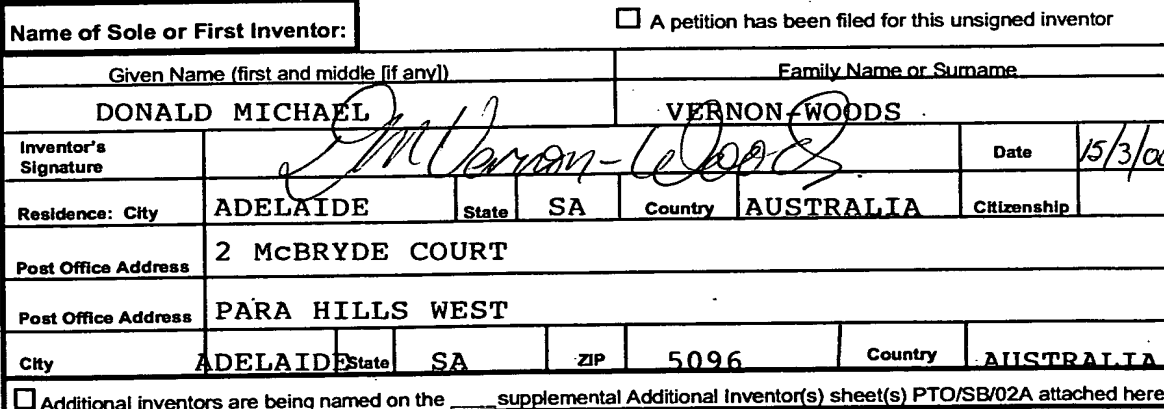 Name of Sole or First Inventor: ☐ A petition has been filed for this unsigned inventor
Given Name (first and middle [if any]) Family Name or Surname
DONALD MICHAEL VERNON-WOODS
Inventor's Signature DM Vernon-Woods Date 15/3/00
Residence: City ADELAIDE State SA Country AUSTRALIA Citizenship
Post Office Address 2 McBRYDE COURT
Post Office Address PARA HILLS WEST
City ADELAIDE State SA ZIP 5096 Country AUSTRALIA
☐ Additional inventors are being named on the ____supplemental Additional Inventor(s) sheet(s) PTO/SB/02A attached here